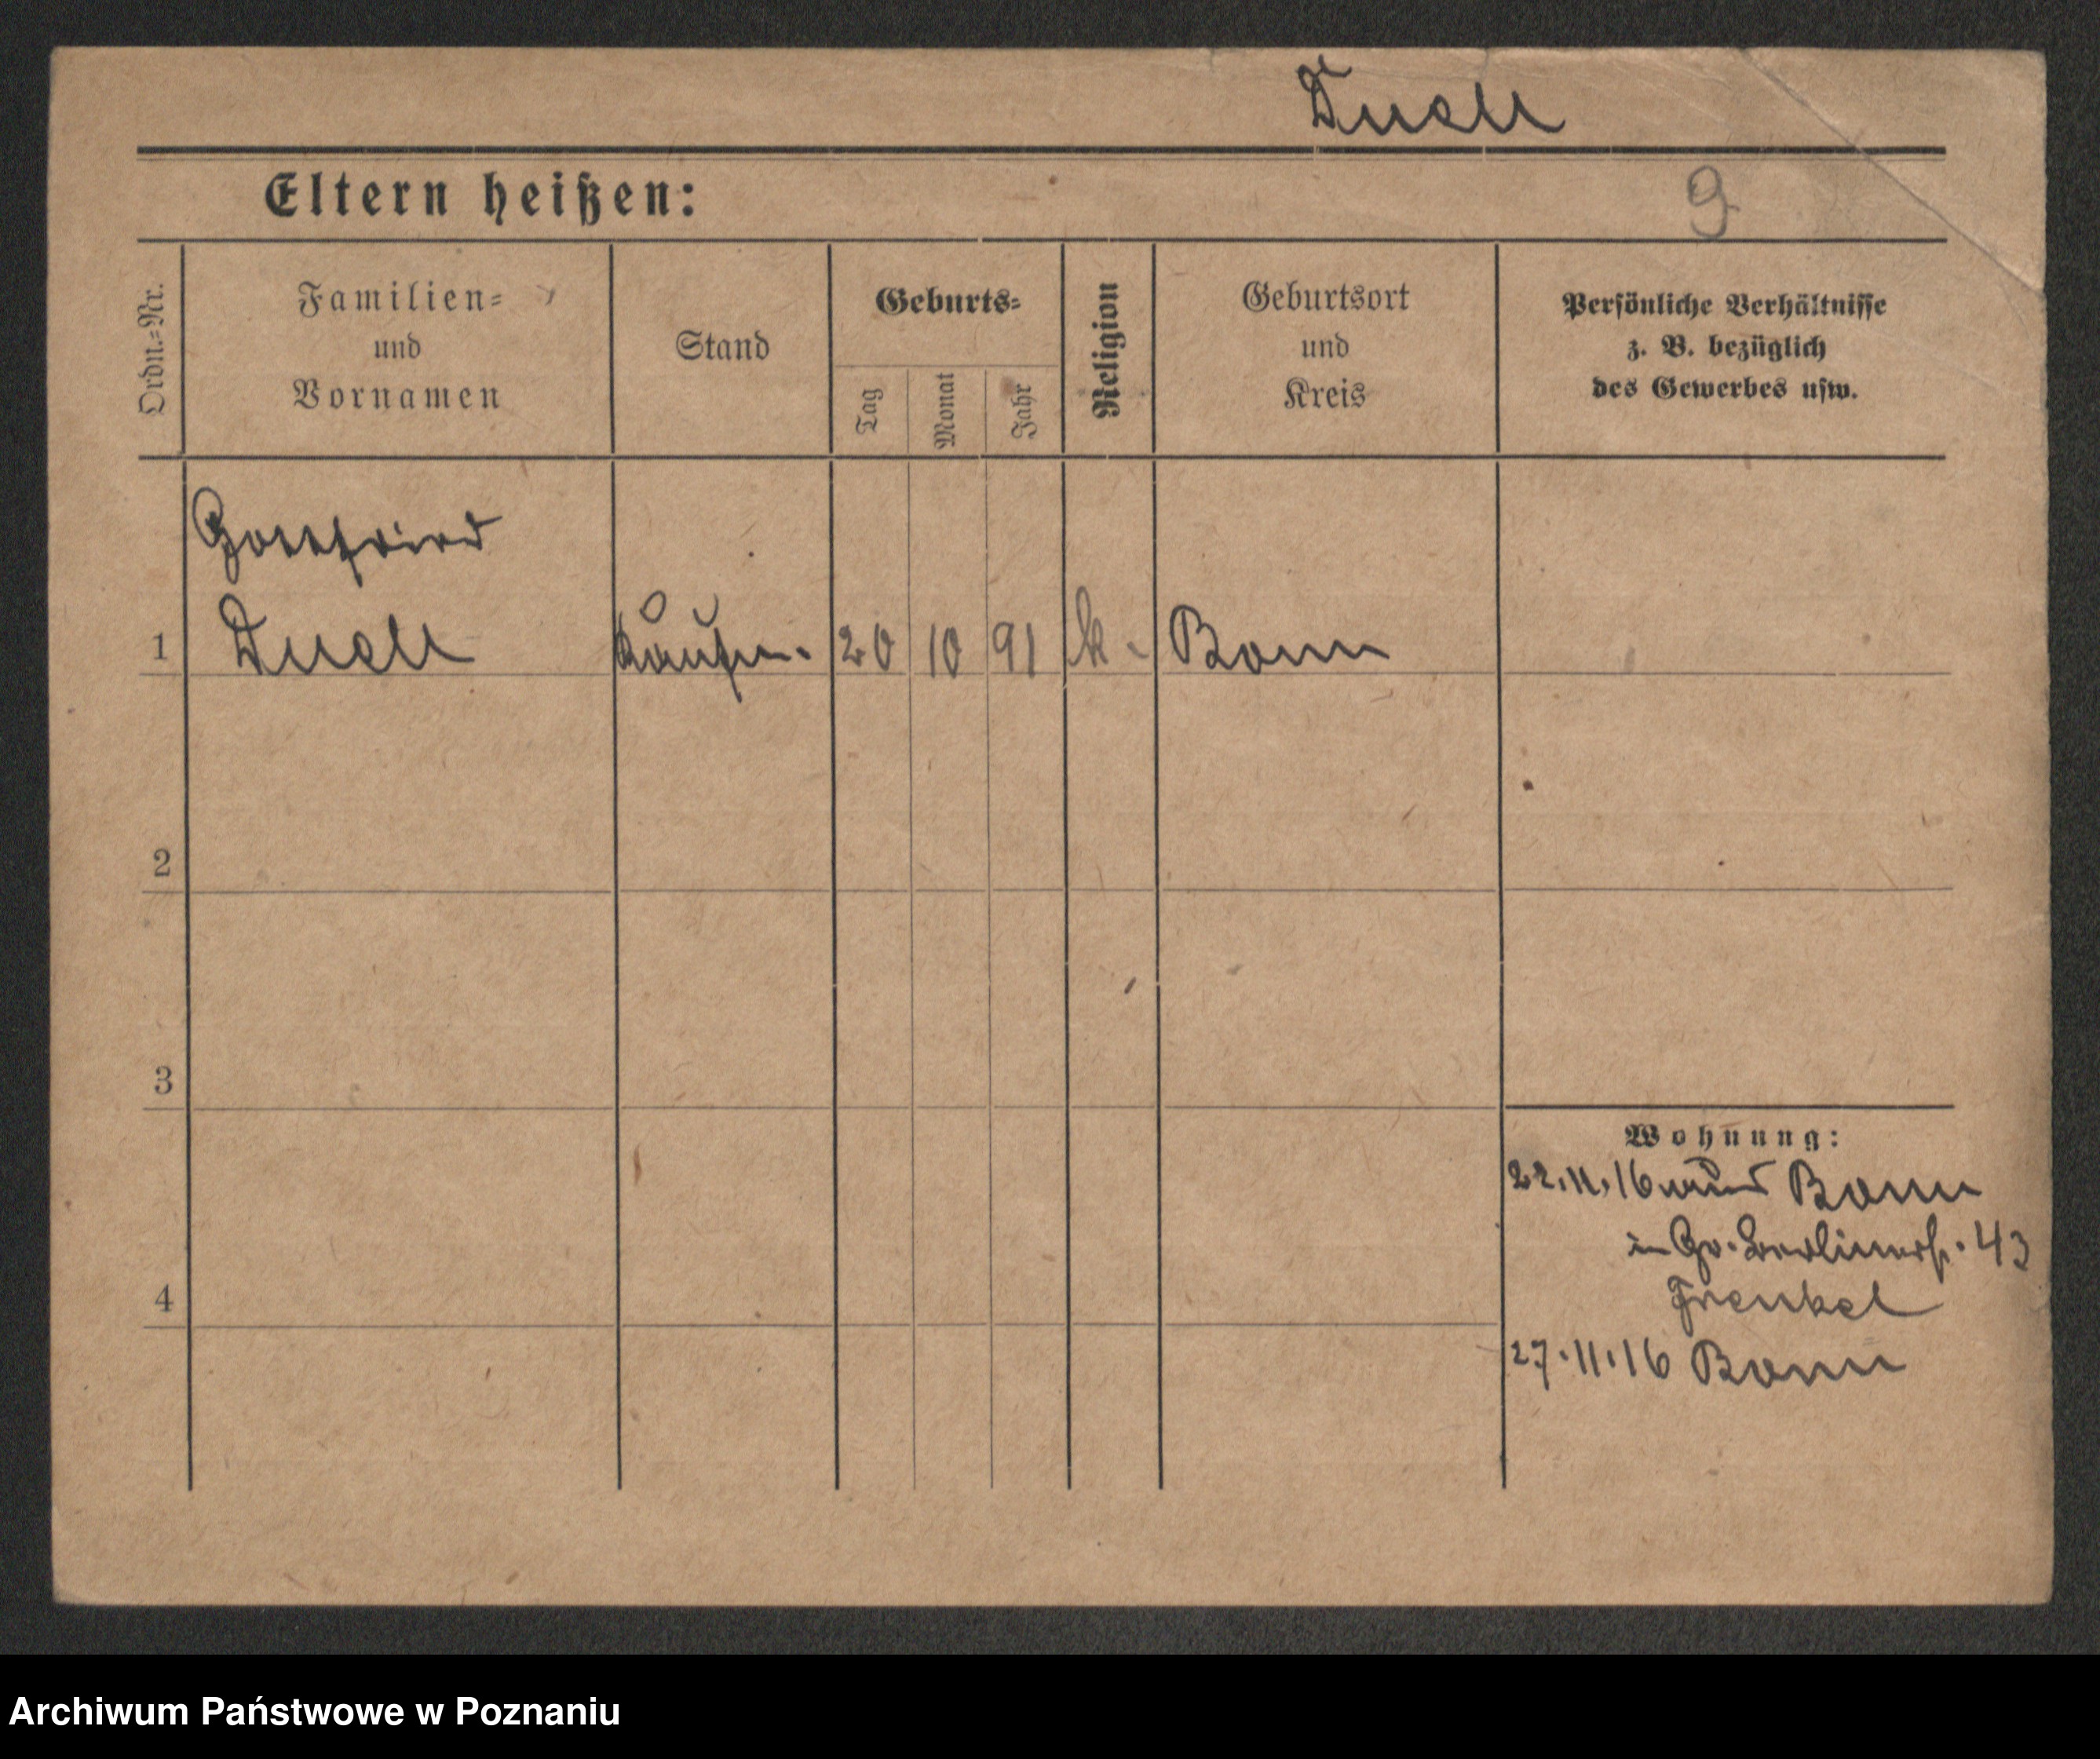 Duell
Eltern heißen:
9
Ordn.=Nr.
Familien=
und
Vornamen
Stand
Geburts=
Tag
Monat
Jahr
Religion
Geburtsort
und
Kreis
Persönliche Verhältnisse
z. B. bezüglich
des Gewerbes usw.
Gottfried
1 Duell Kaufm. 20 10 91 k. Bonn
2
3
4
Wohnung:
22.11.16 Bonn
in Gr. Berlinerstr. 43
Frenkel
27.11.16 Bonn
Archiwum Państwowe w Poznaniu